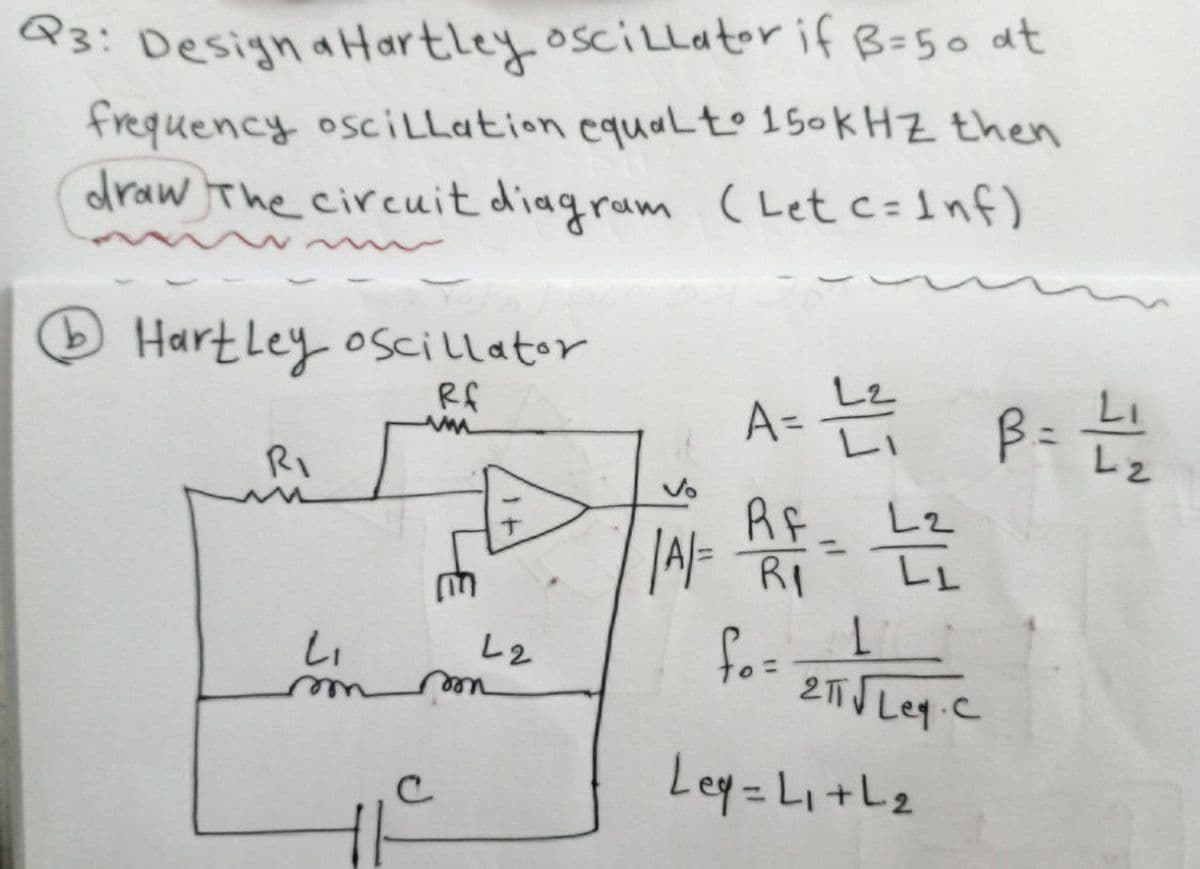 Q3: Design a Hartley oscillator if B=50 at
frequency oscillation equal to 150kHZ then
draw The circuit diagram (Let c=1nf)
(b) Hartley oscillator
Rf
R1
-
+
Vo
L1
L2
C
A= L2/L1
β= L1/L2
|A|= Rf/R1 = L2/L1
fo= 1/2π√Leq.c
Leq=L1+L2